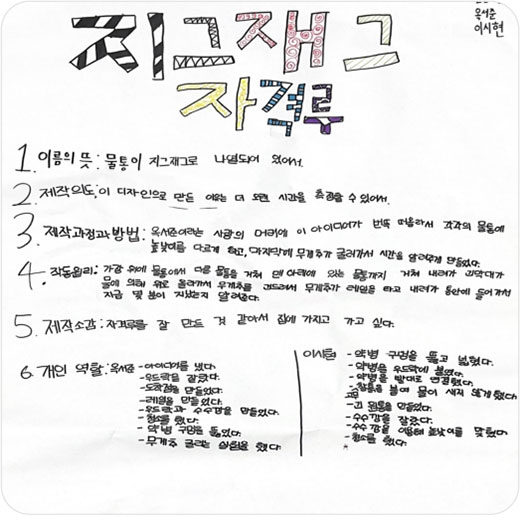 옥서준
이시현
지그재그
자격루
1. 이름의 뜻 : 물통이 지그재그로 나열되어 있어서.
2. 제작의도 : 이 디자인으로 만든 이유는 더 오랜 시간을 측정할 수 있어서.
3. 제작과정과 방법 : 옥서준이라는 사람의 머리에 이 아이디어가 번뜩 떠올라서 각각의 물통에
높낮이를 다르게 하고, 마지막에 무게추가 굴러가서 시간을 알려주게 만들었다.
4. 작동원리 : 가장 위에 물통에서 다른 물통을 거쳐 맨 아래에 있는 물통까지 거쳐 내려가 막대가
물에 의해 위로 올라가서 무게추를 건드려서 무게추가 레일을 타고 내려가 통안에 들어가서
지금 몇 분이 지났는지 알려준다.
5. 제작소감 : 자격루를 잘 만든 것 같아서 집에 가지고 가고 싶다.
6 개인 역할 : 옥서준 - 아이디어를 냈다.
- 우드락을 잘랐다.
- 도착점을 만들었다.
- 레일을 만들었다.
- 우드락과 수수깡을 만들었다.
- 청소를 했다.
- 약병 구멍을 뚫었다.
- 무게추 굴리는 실험을 했다.
이시현 - 약병 구멍을 뚫고 넓혔다.
- 약병을 우드락에 붙였다.
- 약병을 빨대로 연결했다.
- 물이 새지 않게 했다.
- 긴 원통을 만들었다.
- 수수깡을 잘랐다.
- 수수깡을 이용해 높낮이를 맞췄다.
- 청소를 했다.